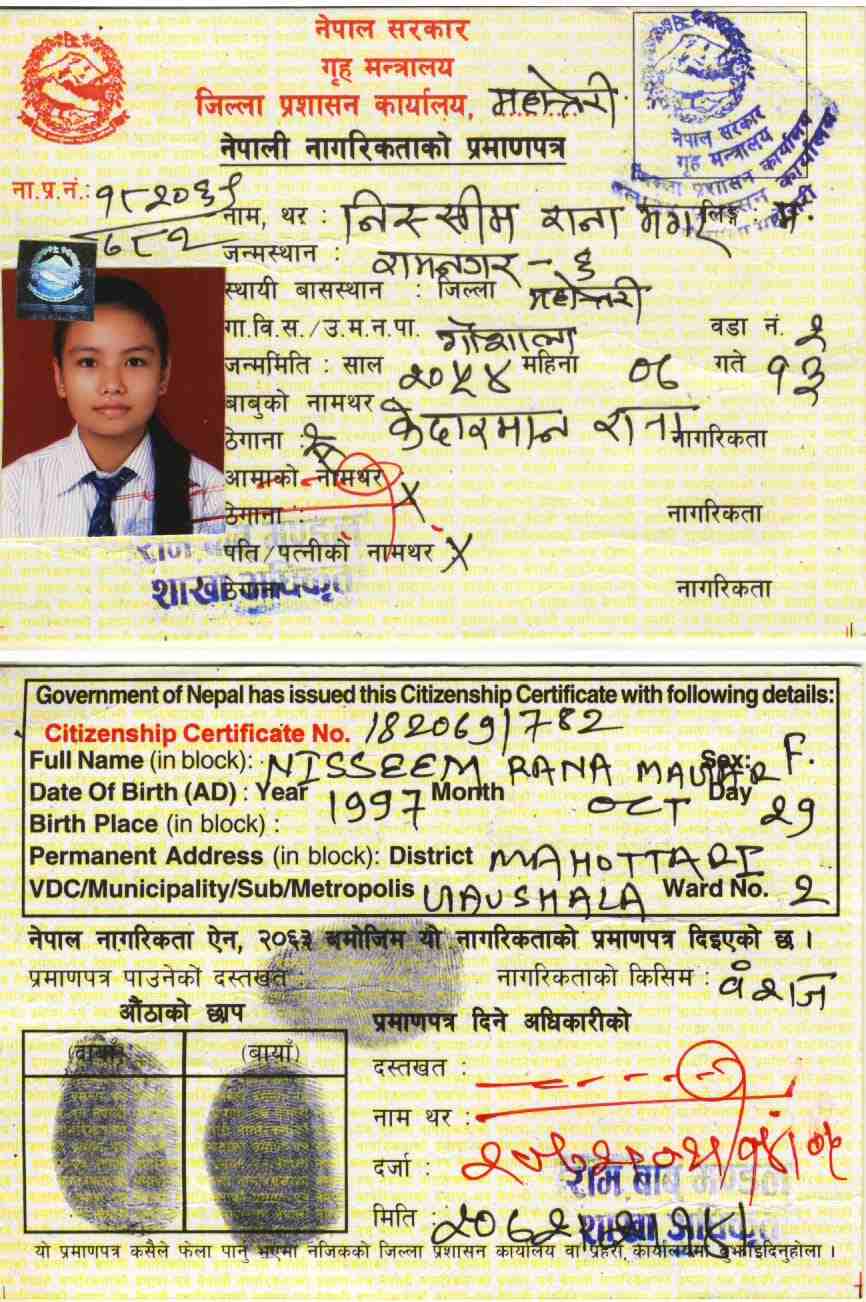 नेपाल सरकार
गृह मन्त्रालय
जिल्ला प्रशासन कार्यालय, महोत्तरी
नेपाली नागरिकताको प्रमाणपत्र
नेपाल सरकार
गृह मन्त्रालय
जिल्ला प्रशासन कार्यालय
ना.प्र.नं.: १८२०६९/७८२
नाम, थर : निस्सीम राना मगर लिङ्ग :
जन्मस्थान : रामनगर - ६
स्थायी बासस्थान : जिल्ला महोत्तरी
गा.वि.स./उ.म.न.पा. गौशाला वडा नं. २
जन्ममिति : साल २०५४ महिना ०८ गते १३
बाबुको नामथर केदारमान राना
ठेगाना : नागरिकता
आमाको नामथर X
ठेगाना : नागरिकता
पति/पत्नीको नामथर X
ठेगाना नागरिकता
शाखा अधिकृत
Government of Nepal has issued this Citizenship Certificate with following details:
Citizenship Certificate No. 182069/782
Full Name (in block): NISSEEM RANA MAGAR Sex: F.
Date Of Birth (AD) : Year 1997 Month OCT Day 29
Birth Place (in block) :
Permanent Address (in block): District MAHOTTARI
VDC/Municipality/Sub/Metropolis GAUSHALA Ward No. 2
नेपाल नागरिकता ऐन, २०६३ बमोजिम यो नागरिकताको प्रमाणपत्र दिइएको छ ।
प्रमाणपत्र पाउनेको दस्तखत : नागरिकताको किसिम : वंशज
औंठाको छाप
(बायाँ)
प्रमाणपत्र दिने अधिकारीको
दस्तखत :
नाम थर :
दर्जा :
राम बाबु मण्डल
शाखा अधिकृत
मिति :
यो प्रमाणपत्र कसैले फेला पानु भएमा नजिकको जिल्ला प्रशासन कार्यालय वा प्रहरी कार्यालयमा बुझाइदिनुहोला ।